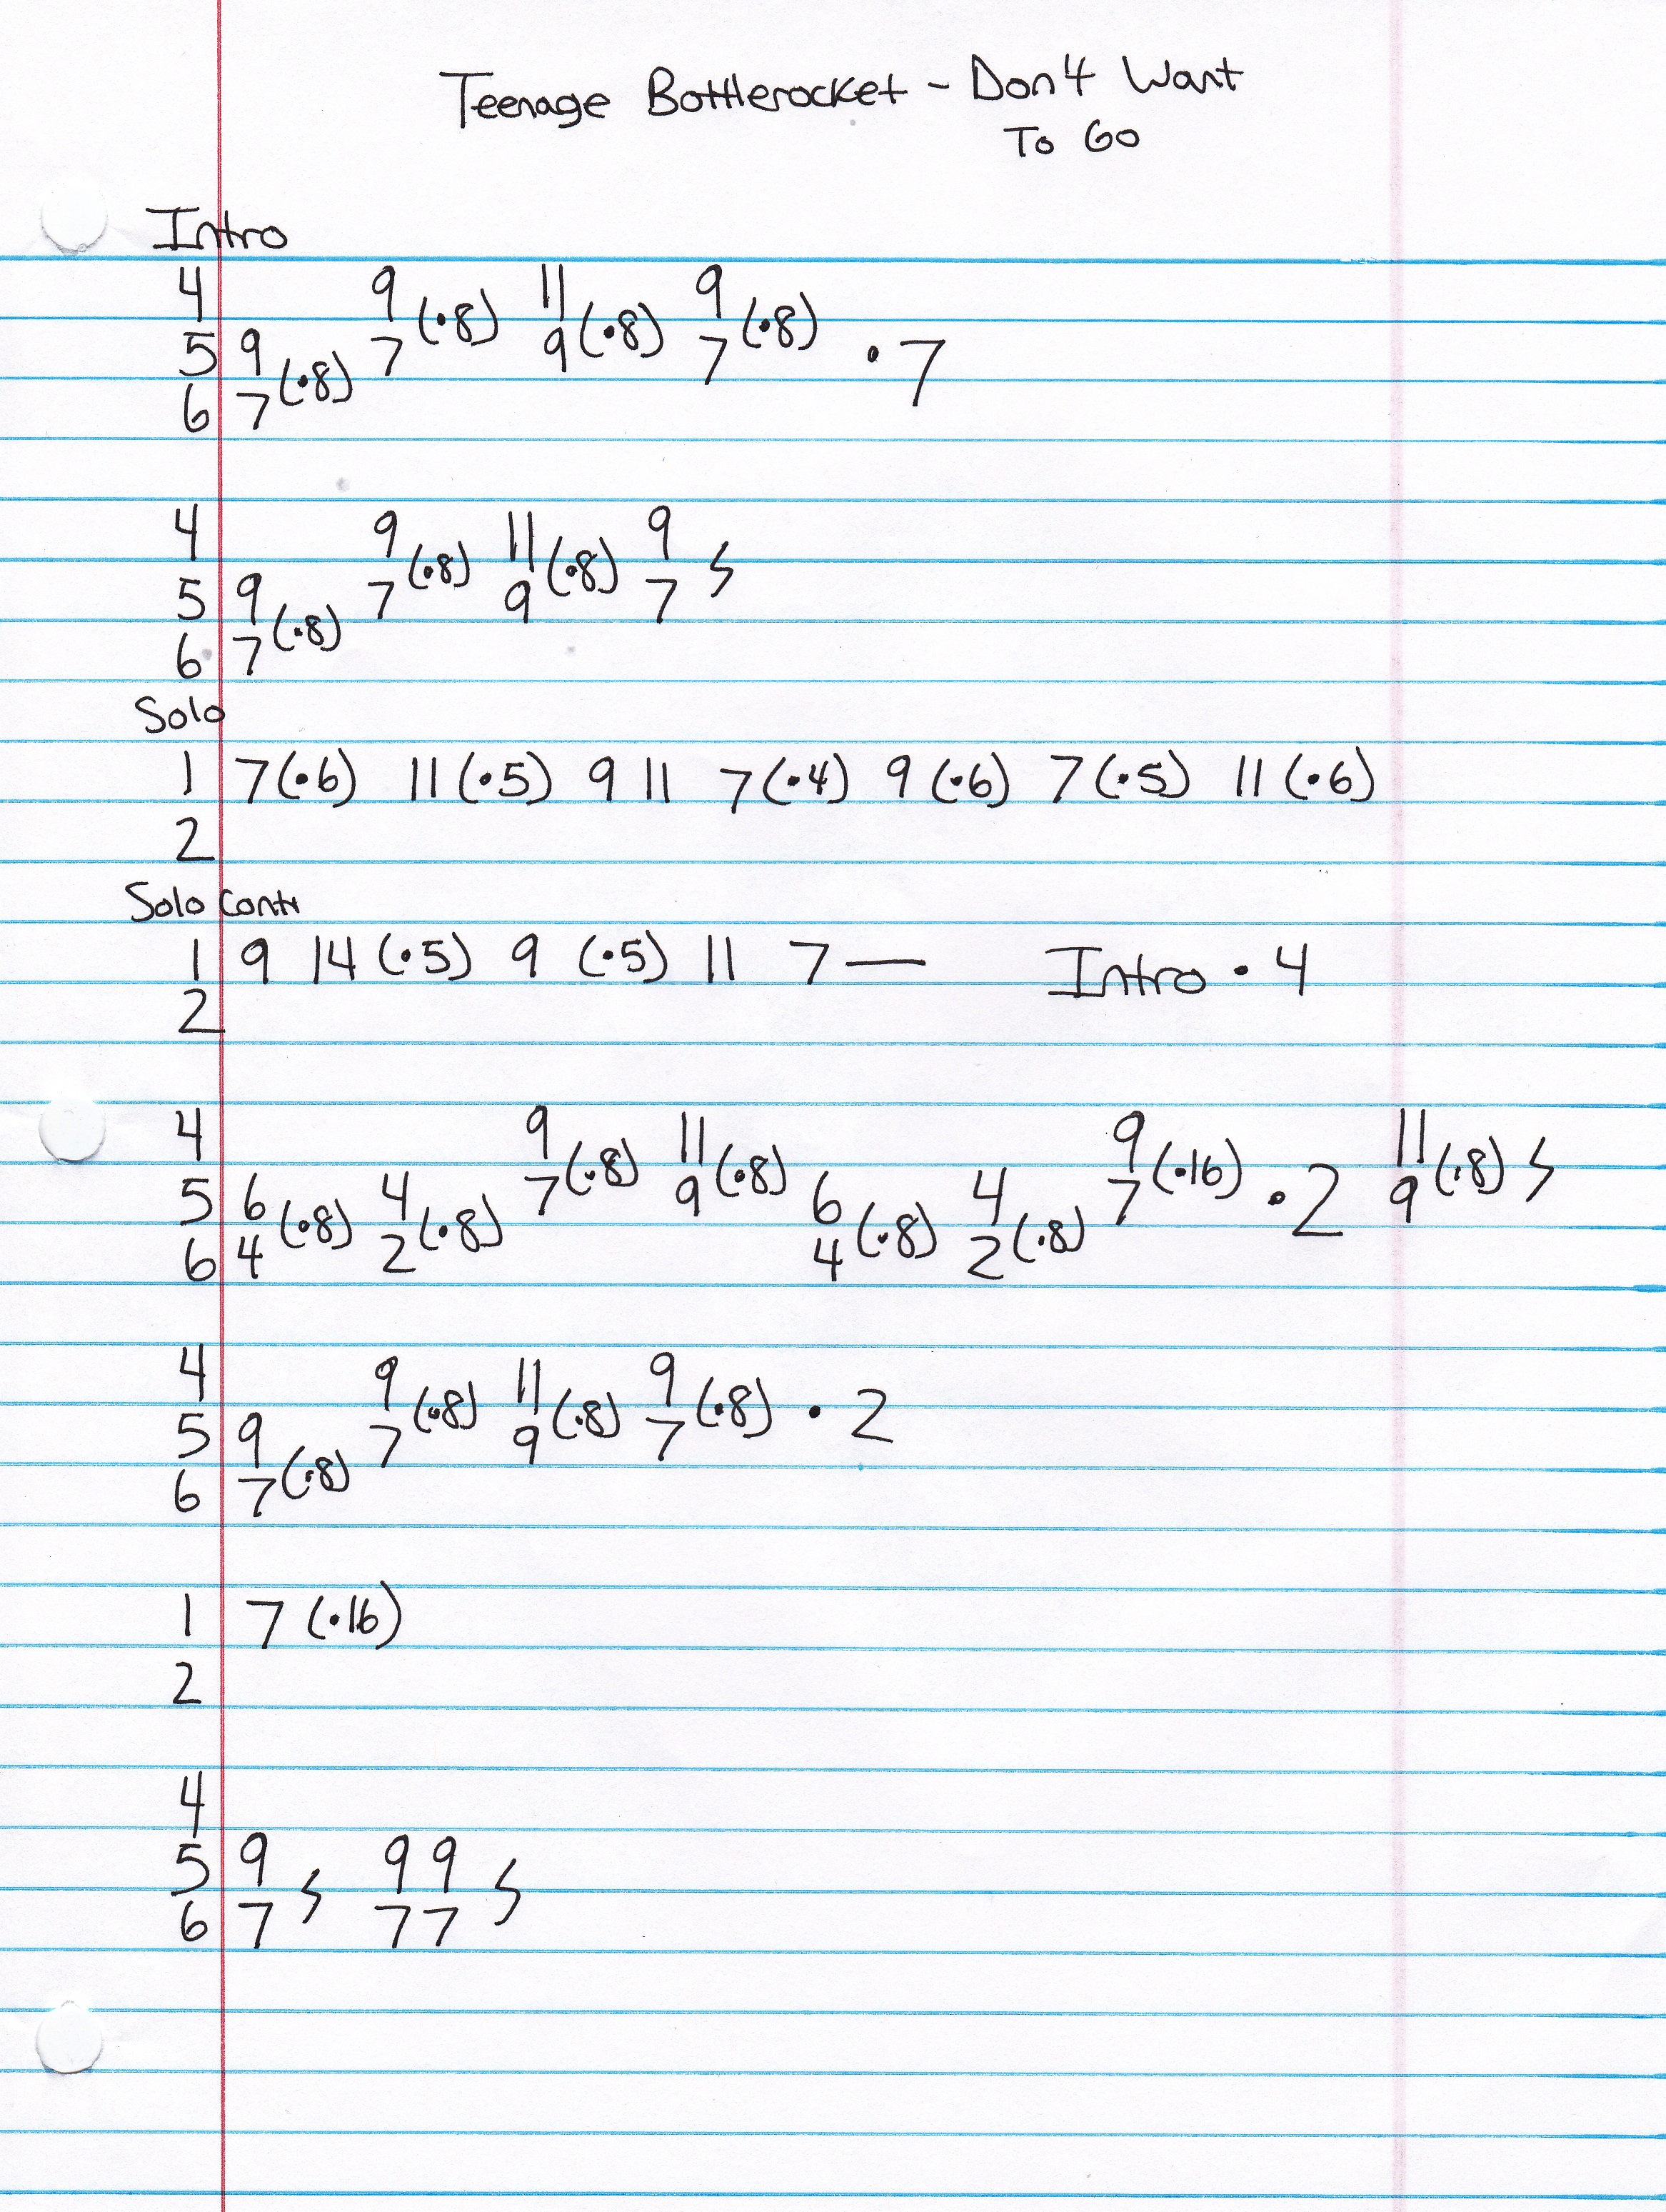 Teenage Bottlerocket - Don't Want
To Go
Intro
4 9 (·8) 11 9
5 9 (·8) 7 9 (·8) 7 (·8) · 7
6 7
4 9 (·8) 11 (·8) 9
5 9 (·8) 7 9 7 ϟ
6 7
Solo
1 7 (·6) 11 (·5) 9 11 7 (·4) 9 (·6) 7 (·5) 11 (·6)
2
Solo Cont
1 9 14 (·5) 9 (·5) 11 7 — Intro · 4
2
4 9 11 9 11
5 6 (·8) 4 (·8) 7 (·8) 9 (·8) 6 (·8) 4 (·8) 7 (·16) · 2 9 (·8) ϟ
6 4 2 4 2
4 9 11 9
5 9 (·8) 7 (·8) 9 (·8) 7 (·8) · 2
6 7
1 7 (·16)
2
4
5 9 ϟ 9 9 ϟ
6 7 7 7